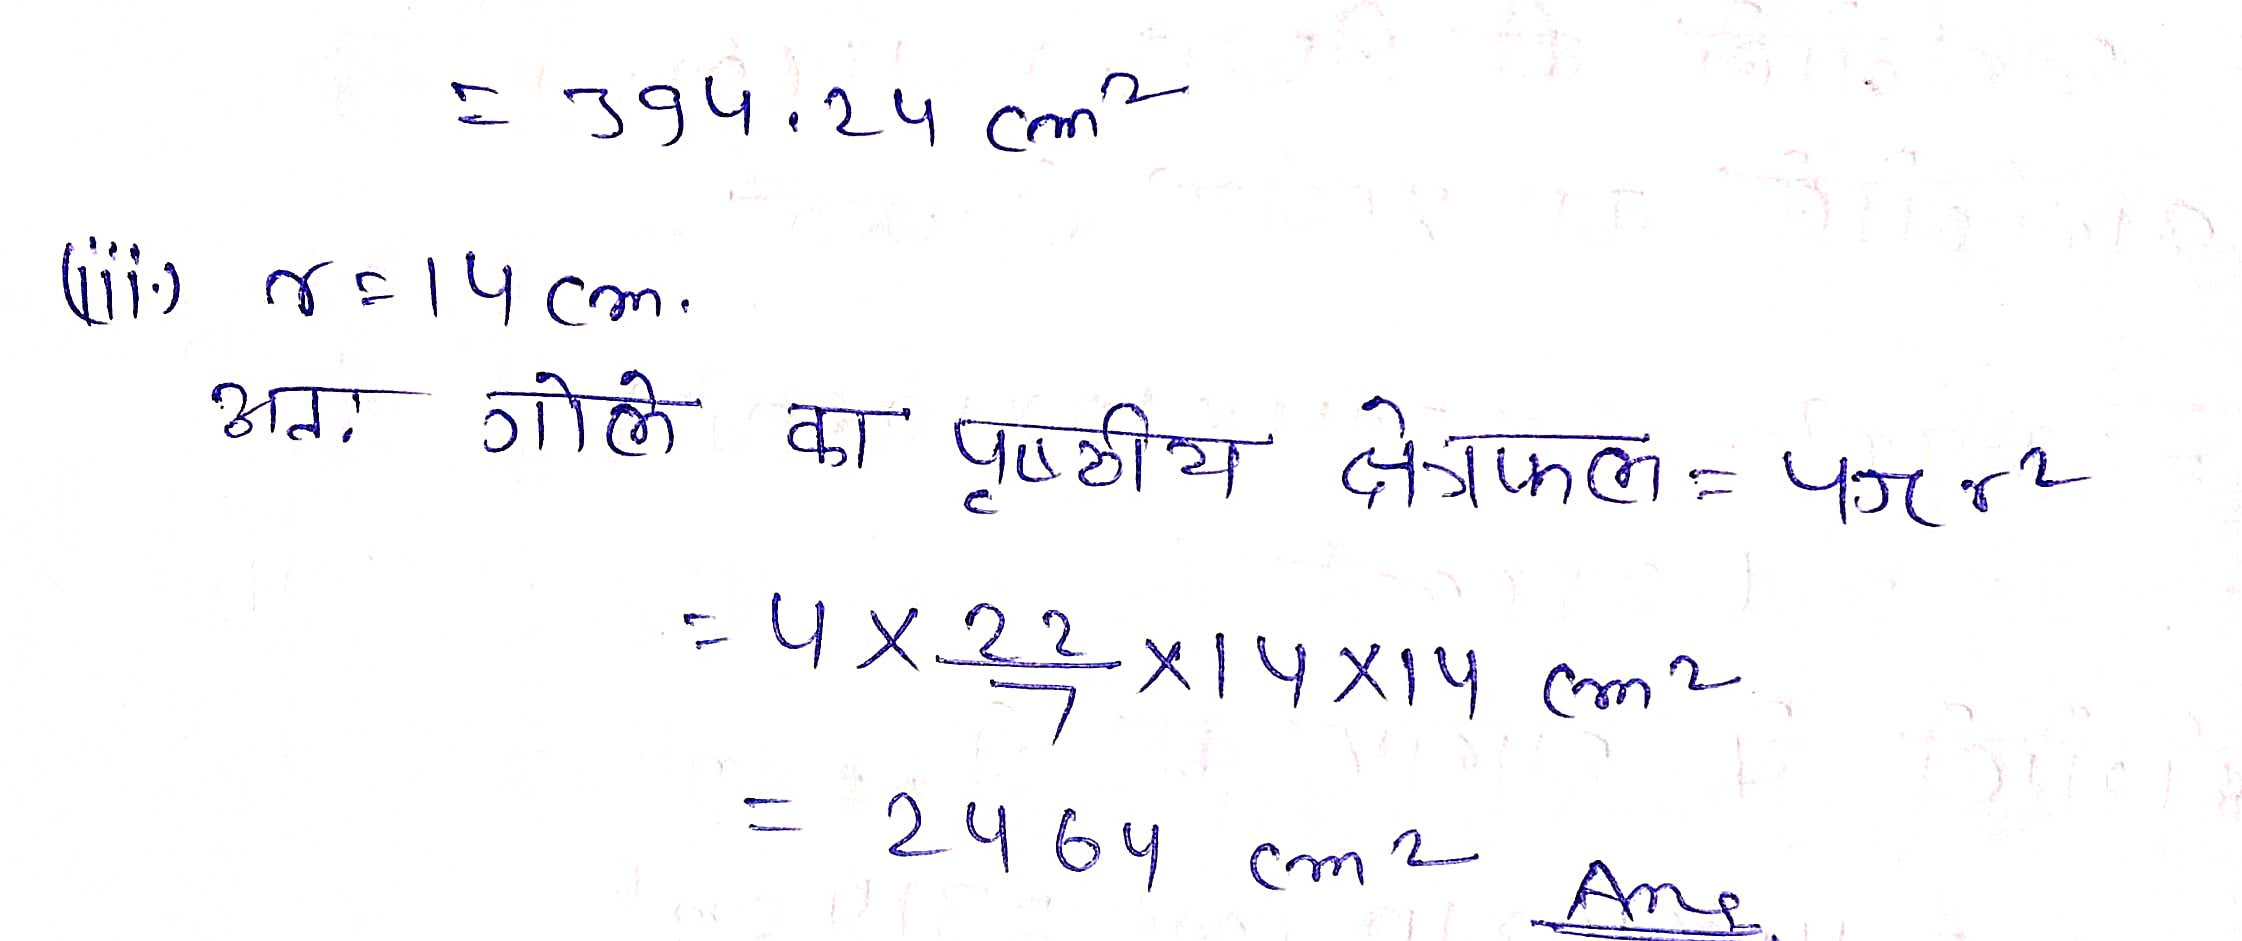 = 394.24 cm²
(iii.) r = 14 cm.
अतः गोले का पृष्ठीय क्षेत्रफल = 4πr²
= 4 × 22/7 × 14 × 14 cm²
= 2464 cm² Ans.